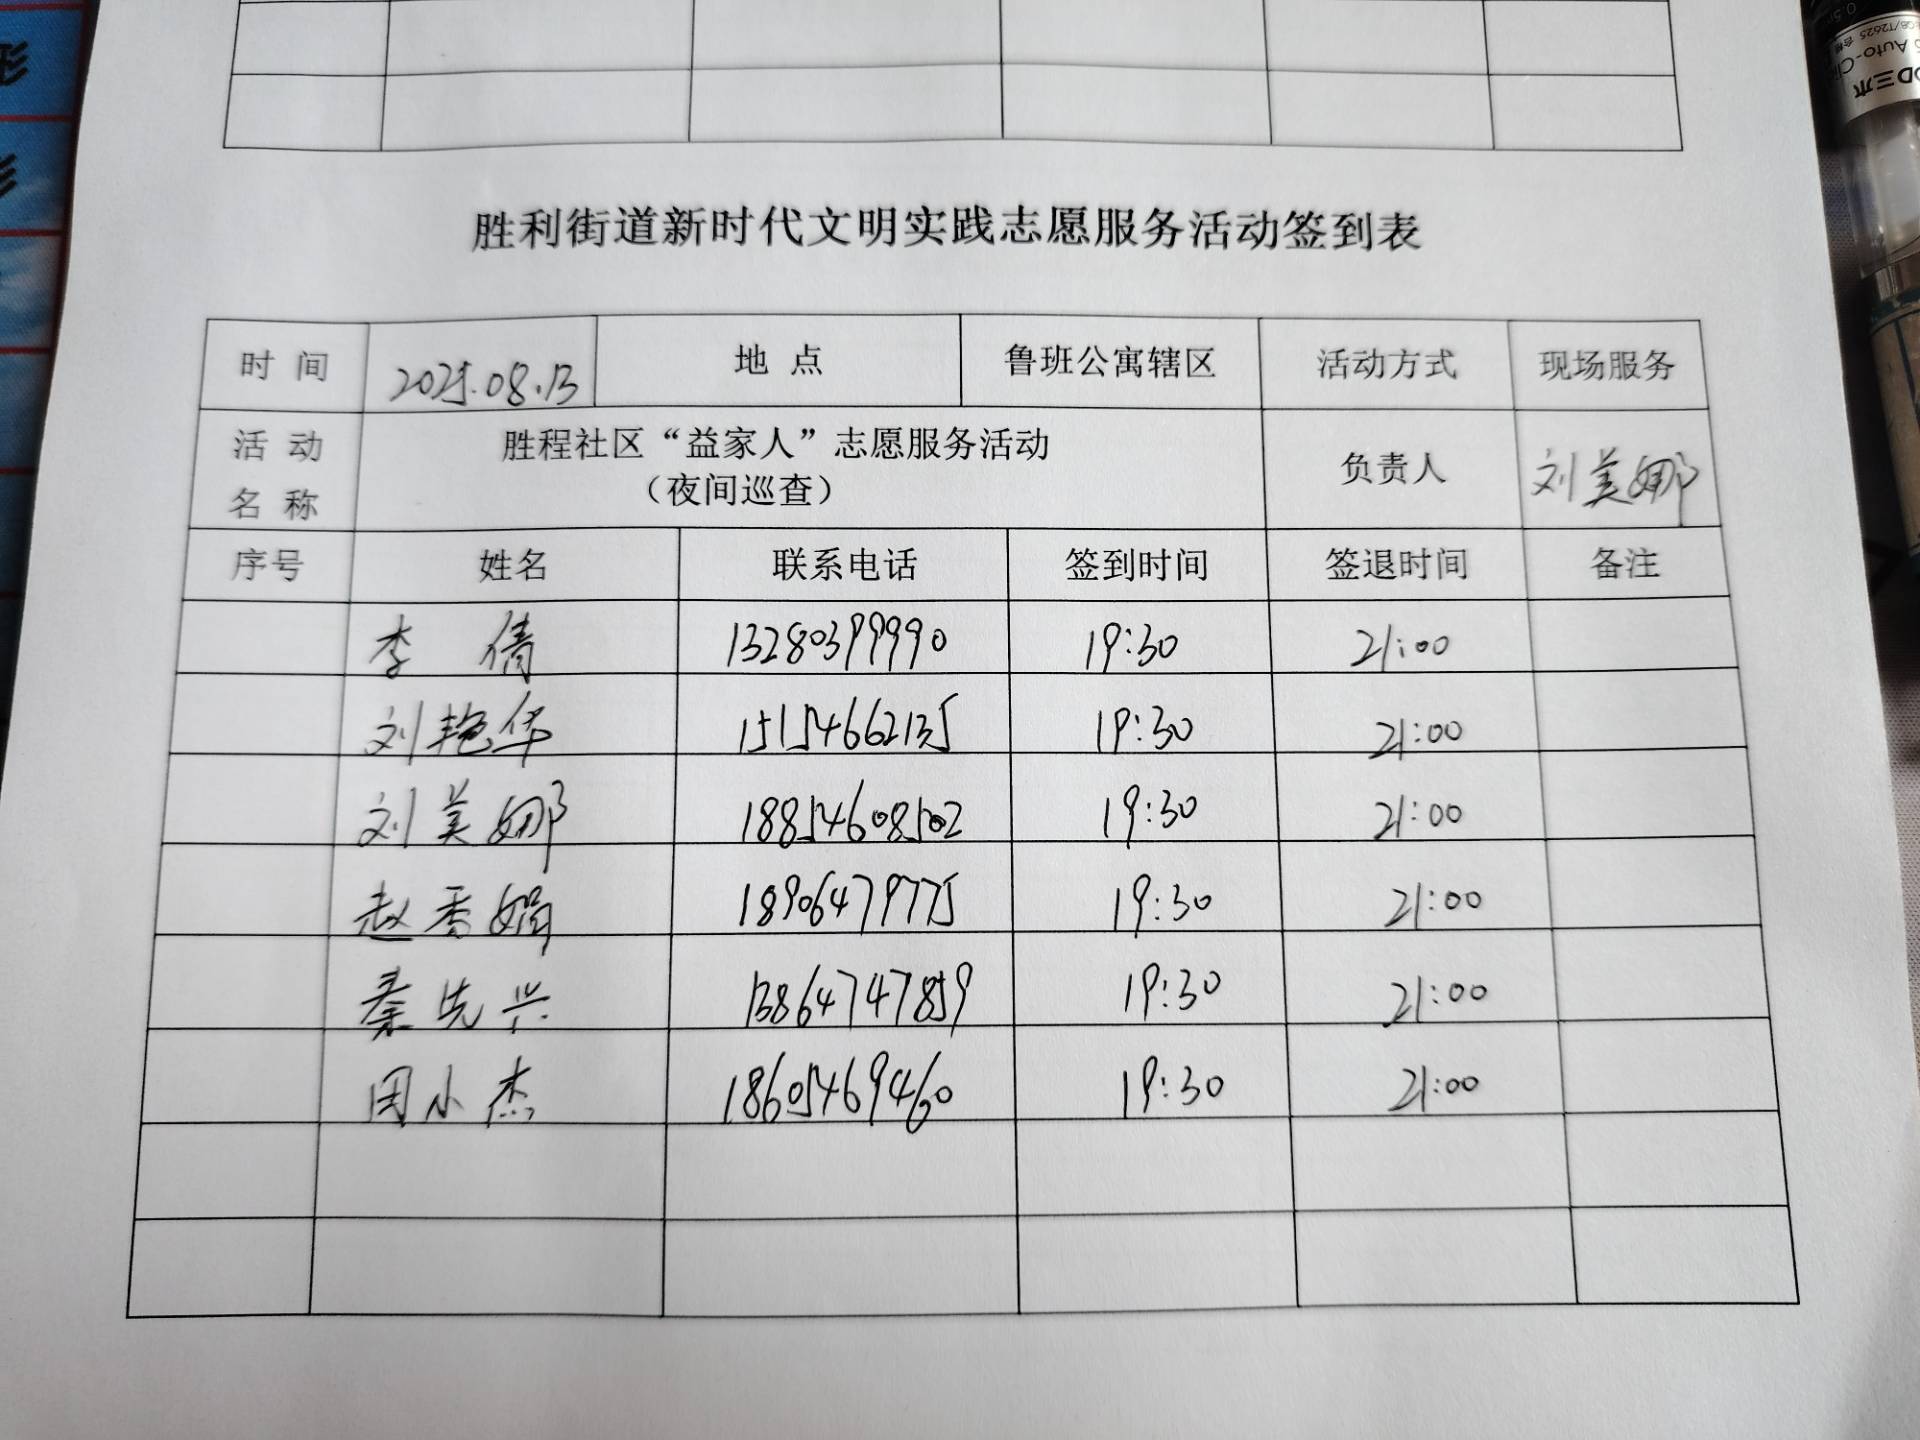 胜利街道新时代文明实践志愿服务活动签到表
时 间 2025.08.13 地 点 鲁班公寓辖区 活动方式 现场服务
活 动 名 称 胜程社区“益家人”志愿服务活动 （夜间巡查） 负责人 刘美娜
序号 姓名 联系电话 签到时间 签退时间 备注
李倩 13280399990 19:30 21:00
刘艳华 15154662135 19:30 21:00
刘美娜 18854608502 19:30 21:00
赵香娟 18906479775 19:30 21:00
秦先兴 13864747859 19:30 21:00
周小杰 18605469460 19:30 21:00
三木